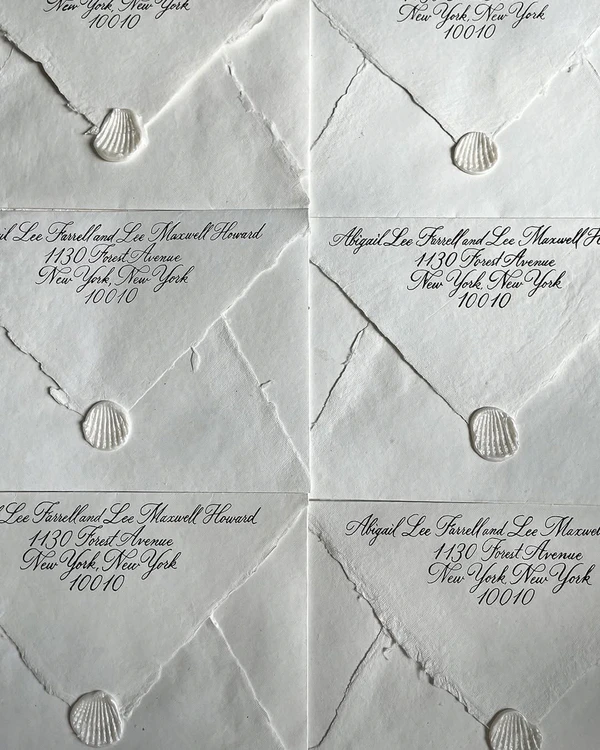 New York, New York
10010
New York, New York
10010
Lee Farrell and Lee Maxwell Howard
1130 Forest Avenue
New York, New York
10010
Abigail Lee Farrell and Lee Maxwell
1130 Forest Avenue
New York, New York
10010
Lee Farrell and Lee Maxwell Howard
1130 Forest Avenue
New York, New York
10010
Abigail Lee Farrell and Lee
1130 Forest Avenue
New York, New York
10010